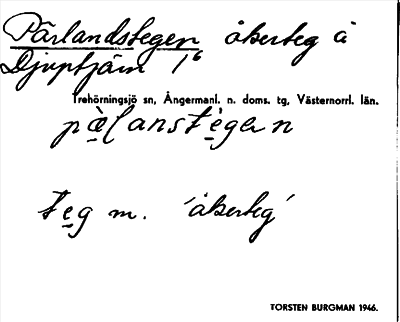 Pärlandstegen åkerteg å
Djuptjärn 1⁶
Trehörningsjö sn, Ångermanl. n. doms. tg, Västernorrl. län.
pæ̀lanstègen
teg m. 'åkerteg'
TORSTEN BURGMAN 1946.